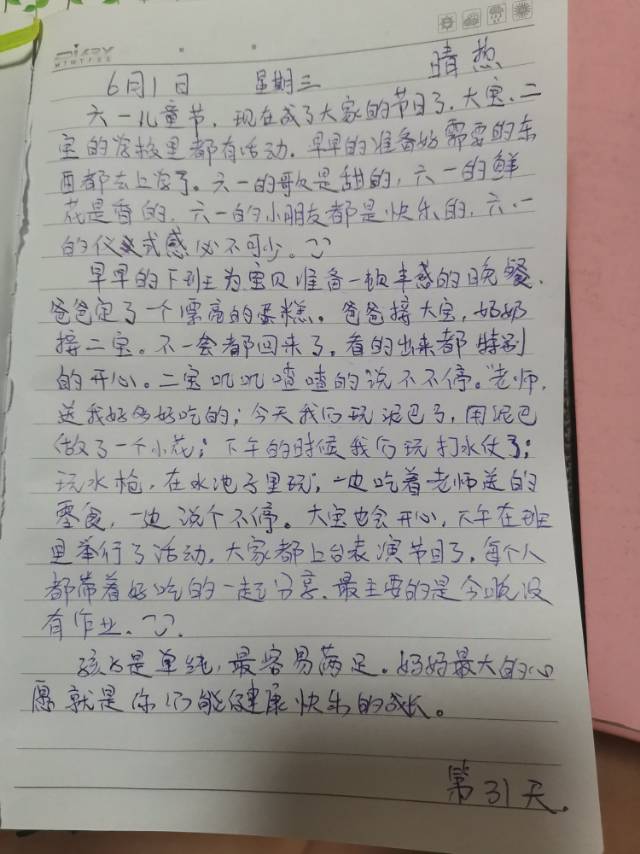 DIARY
6月1日 星期三 晴 热
六一儿童节,现在成了大家的节日了,大宝、二
宝的学校里都有活动,早早的准备好需要的东
西都去上学了。六一的歌是甜的,六一的鲜
花是香的,六一的小朋友都是快乐的,六一
的仪式感必不可少。
早早的下班为宝贝准备一顿丰盛的晚餐,
爸爸定了一个漂亮的蛋糕。爸爸接大宝,妈妈
接二宝。不一会都回来了,看的出来都特别
的开心。二宝叽叽喳喳的说不不停。"老师,
送我好多好吃的;今天我们玩泥巴了,用泥巴
做了一个小花;下午的时候我们玩打水仗了;
玩水枪,在水池子里玩;一边吃着老师送的
零食,一边说个不停。大宝也会开心,下午在班
里举行了活动,大家都上台表演节目了,每个人
都带着好吃的一起分享,最主要的是今晚没
有作业、
孩子是单纯,最容易满足。妈妈最大的心
愿就是你们能健康快乐的成长。
第31天。